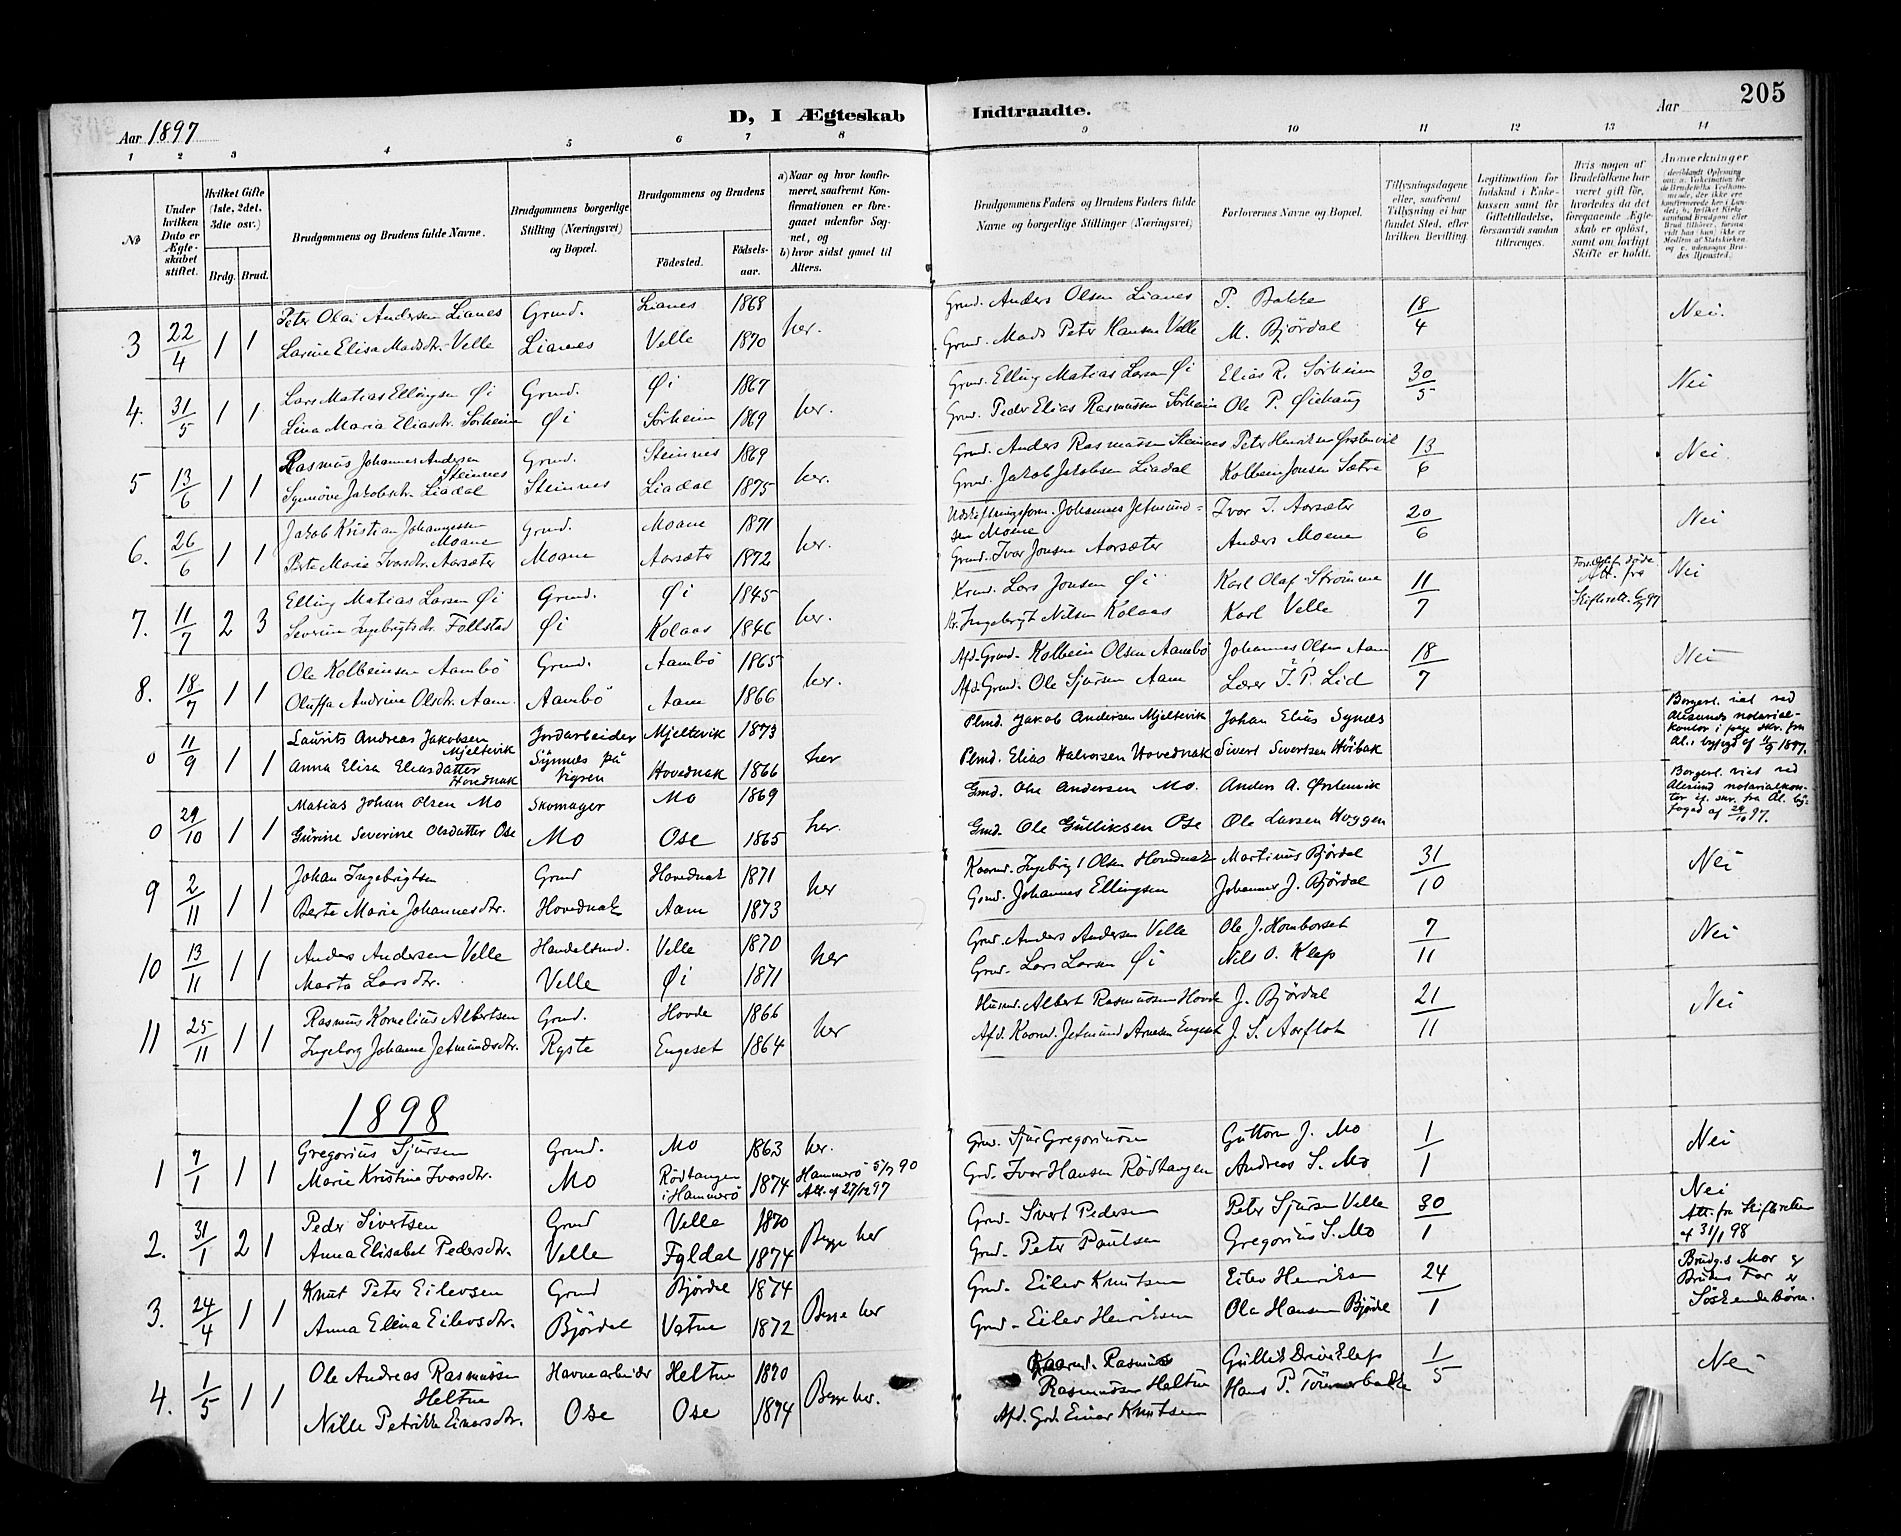 205
D, I Ægteskab Indtraadte.
Aar 1897
Aar
1 2 3 4 5 6 7 8 9 10 11 12 13 14
No
Under hvilken Dato er Ægteskabet stiftet.
Hvilket Gifte (1ste, 2det, 3die osv.)
Brdg. Brud.
Brudgommens og Brudens fulde Navne.
Brudgommens borgerlige Stilling (Næringsvei) og Bopæl.
Brudgommens og Brudens
Födested.
Födselsaar.
a) Naar og hvor konfirmeret, saafremt Konfirmationen er foregaaet udenför Sognet, og
b) hvor sidst gaaet til Alters.
Brudgommens Faders og Brudens Faders fulde Navne og borgerlige Stillinger (Næringsvei)
Forlovernes Navne og Bopæl.
Tillysningsdagene eller, saafremt Tillysning ei har fundet Sted, efter hvilken Bevilling.
Legitimation for Indskud i Enkekassen samt for Giftetilladelse, forsaavidt saadan tiltrænges.
Hvis nogen af Brudefolkene har været gift før, hvorledes da det foregaaende Ægteskab er opløst, samt om lovligt Skifte er holdt.
Anmærkninger
3 22/4 1 1 Peter Olai Andersen Lianes Grund. Lianes 1868 her. Grund. Anders Olsen Lianes P. Bakke 18/4 Nei.
Larine Elisa Madsdtr. Velle Lianes Velle 1870 Grund. Mads Peter Hansen Velle M. Bjørdal
4. 31/5 1 1 Lars Matias Ellingsen Øi Grund. Øi 1867 her. Grund. Elling Matias Larsen Øi Elias R. Sørheim 30/5 Nei
Lina Maria Eliasdtr. Sørheim Øi Sørheim 1869 Grund. Peder Elias Rasmussen Sørheim Ole P. Øiehaug
5 13/6 1 1 Rasmus Johannes Andersen Steinnes Grund. Steinnes 1869 her. Grund. Anders Rasmussen Steinnes Peter Henriksen Ørstenvik 13/6 Nei.
Synnøve Jakobsdtr. Liadal Steinnes Liadal 1875 Grund. Jakob Jakobsen Liadal Kolbein Jonsen Sætre
6. 26/6 1 1 Jakob Kristian Johannessen Moane Grund. Moane 1871 her. Udskiftningsform. Johannes Jetmundsen Moene Ivar I. Aarsæter 20/6 Nei
Berte Marie Ivarsdtr. Aarsæter Moane Aarsæter 1872 Grund. Ivar Jonsen Aarsæter Anders Moene
7. 11/7 2 3 Elling Matias Larsen Øi Grund. Øi 1845 her. Lars Jonsen Øi Karl Olaf Strømme 11/7 Att. fra Skifterett. Nei
Severine Ingebrigtsdtr. Follstad Øi Kolaas 1846 Ingebrigt Nilsen Kolaas Karl Velle
8. 18/7 1 1 Ole Kolbeinsen Aambö Grund. Aambö 1865 her. Afd. Grund. Kolbein Olsen Aambö Johannes Olsen Aam 18/7 Nei
Oluffa Andrine Olsdtr. Aam. Aambö Aam 1866 Afd. Grund. Ole Sjursen Aam Lærer I. P. Lid
0 11/9 1 1 Laurits Andreas Jakobsen Mjeltevik Jordarbeider Mjeltevik 1873 her Plmd. Jakob Andersen Mjeltevik Johan Elias Synes Borgerl. viet ved Alesunds notarialkontor
Anna Elisa Eliasdatter Hovednak Synnes på Vigren Hovednak 1866 Plmd. Elias Halvorsen Hovednak Sivert Sivertsen Höibak
0 29/10 1 1 Matias Johan Olsen Mo Skomager Mo 1869 her. Gmd. Ole Andersen Mo. Anders A. Ørstenvik Borgerl. viet ved Alesund notarialkontor
Gurine Severine Olsdatter Ose Mo Ose 1865 Gmd. Ole Gulliksen Ose Ole Larsen Hoggen
9 2/11 1 1 Johan Ingebrigtsen Grund Hovednak 1871 her Kaarmd. Ingebrigt Olsen Hovednak Martinus Bjørdal 31/10 Nei
Berte Marie Johannesdtr. Hovednak Aam 1873 Grmd. Johannes Ellingsen Johannes J. Bjørdal
10 13/11 1 1 Anders Andersen Velle Handelsmd. Velle 1870 her Grmd. Anders Andersen Velle Ole J. Homborset 7/11 Nei
Marta Larsdtr. Velle Øi 1871 Grmd. Lars Larsen Øi Nils O. Klep
11 25/11 1 1 Rasmus Kornelius Albertsen Grund. Hovde 1866 her Husmd. Albert Rasmussen Hovde J. Bjørdal 21/11 Nei
Ingeborg Johanne Jetmundsdtr. Ryste Engeset 1864 Afd. Kaarmd. Jetmund Arnesen Engeset J. S. Aarflot
1898
1 7/1 1 1 Gregorius Sjursen Grund. Mo 1863 her. Grmd. Sjur Gregoriussen Guttorm J. Mo 1/1 Nei
Marie Kristine Ivarsdtr. Mo Rödtangen i Hammerö 1874 Hammerö 5/7 90 Att. af 27/12 97 Grd. Ivar Hansen Rödtangen Andreas S. Mo
2. 31/1 2 1 Peder Sivertsen Grund Velle 1870 Begge her Grmd. Sivert Pedersen Peter Sjursen Velle 30/1 Nei Att. fra Skifteretten af 31/1 98
Anna Elisabet Pedersdtr. Velle Fyldal 1874 Grmd. Peter Paulsen Gregorius S. Mo
3. 24/4 1 1 Knut Peter Eilevsen Grund Bjørdal 1874 Begge her Grmd. Eilev Knutsen Eilev Henriksen 24/1 Brudg.s Mor og Brudens Far er Söskendebörn.
Anna Elina Eilevsdtr. Björdal Vatne 1872 Grmd. Eilev Henriksen Ola Hansen Bjödal
4. 1/5 1 1 Ole Andreas Rasmussen Heltne Havnearbeider Heltne 1870 Begge her. Kaarmd. Rasmus Rasmussen Heltne Gullik Klep 1/5 Nei
Nille Petrikke Einarsdtr. Ose Ose 1874 Afd. Grd. Einar Knutsen Hans P. Tömmerbakke